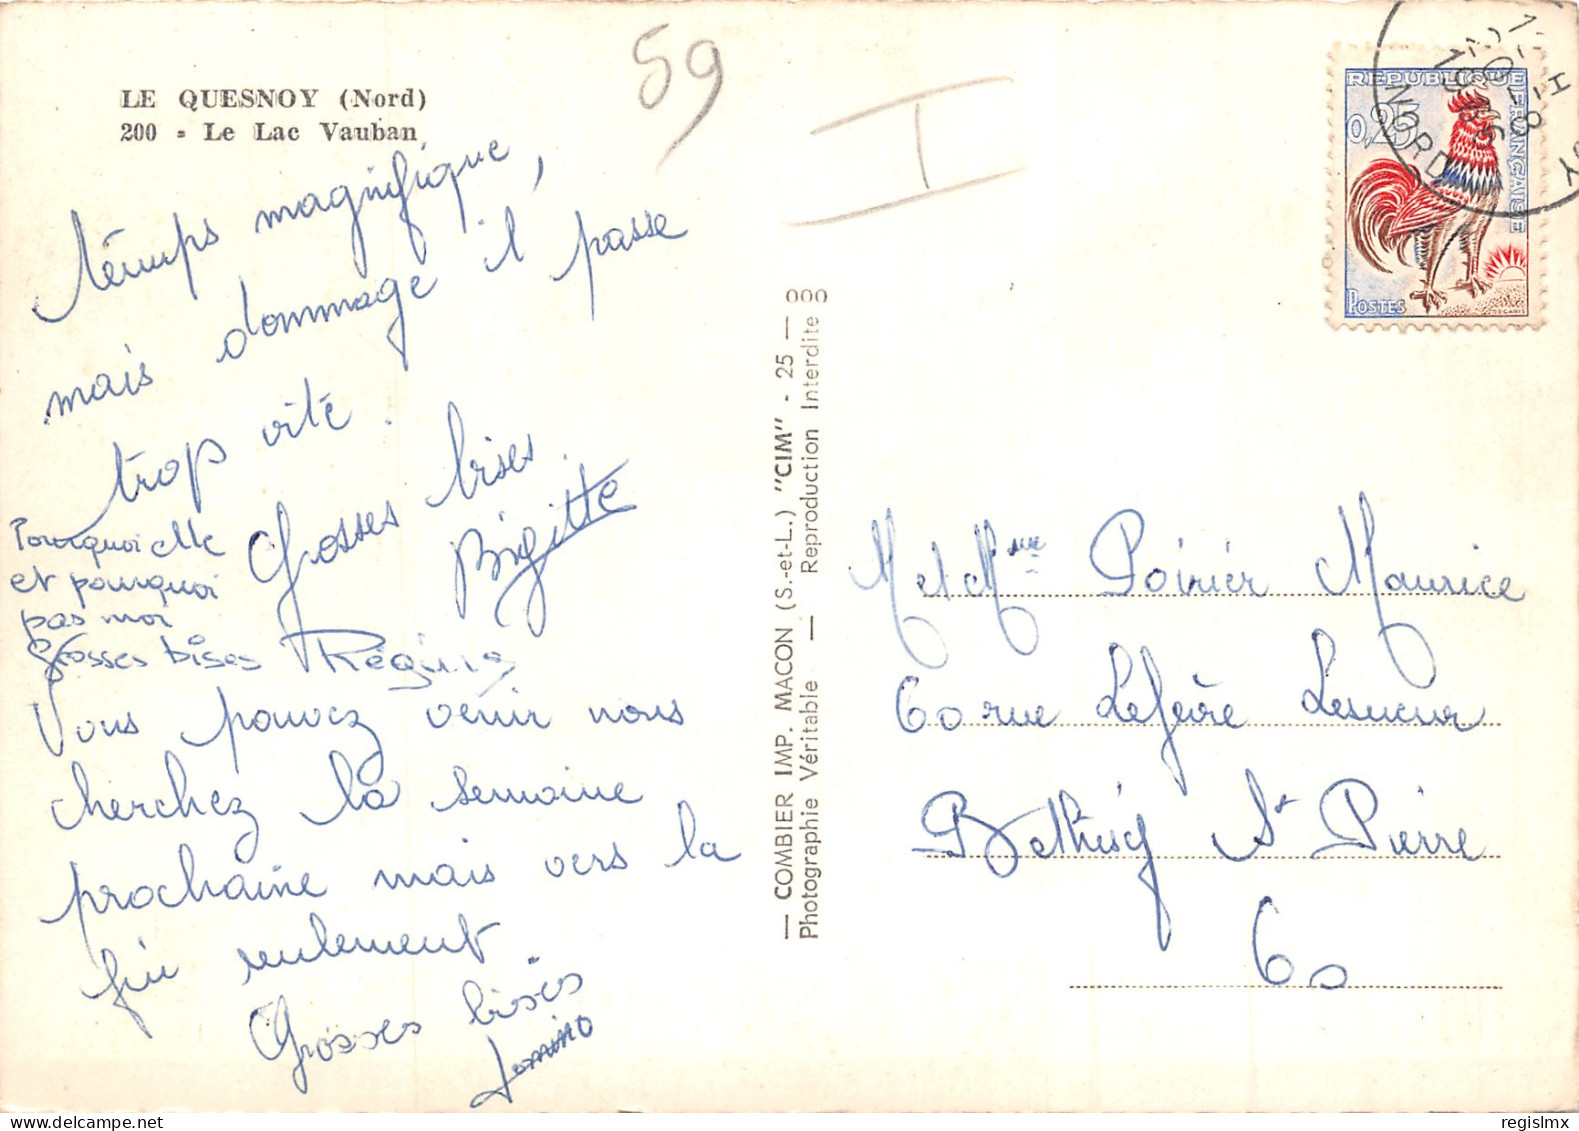 LE QUESNOY (Nord)
200 - Le Lac Vauban
59
I
témps magnifique,
mais dommage il passe
trop vité.
Grosses bises.
Brigitte
Pourquoi elle
et pourquoi
pas moi
Grosses bises Régine
Vous pouvez venir nous
cherchez la semaine
prochaine mais vers la
fin seulement
Grosses bises
COMBIER IMP. MACON (S.-et-L.) "CIM" - 25 —
Photographie Véritable — Reproduction Interdite
REPUBLIQUE FRANÇAISE
0,25
POSTES
DECARIS
NORD
M et Mme Poirier Maurice
60 rue Lefèvre Lesueur
Béthisy St Pierre
60
regislmx